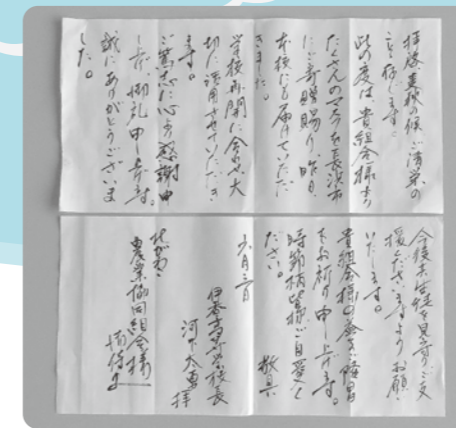 拝啓 初秋の候 ご清栄の
ことと存じます。
此の度は、貴組合様より
たくさんのマスクを長浜市
にご寄贈賜り、昨日、
本校にも届けていただ
きました。
学校再開に合わせ、大
切に活用させていただき
ます。
ご篤志に心より感謝申
し上げ、御礼申し上げます。
誠にありがとうございま
した。
今後共、生徒を見守りご支
援くださいますようお願い
いたします。
貴組合様の益々の隆昌
をお祈り申し上げます。
時節柄、皆様ご自愛く
ださい。
敬具
六月二日
伊香高等学校長
拝
北びわこ
農業協同組合様